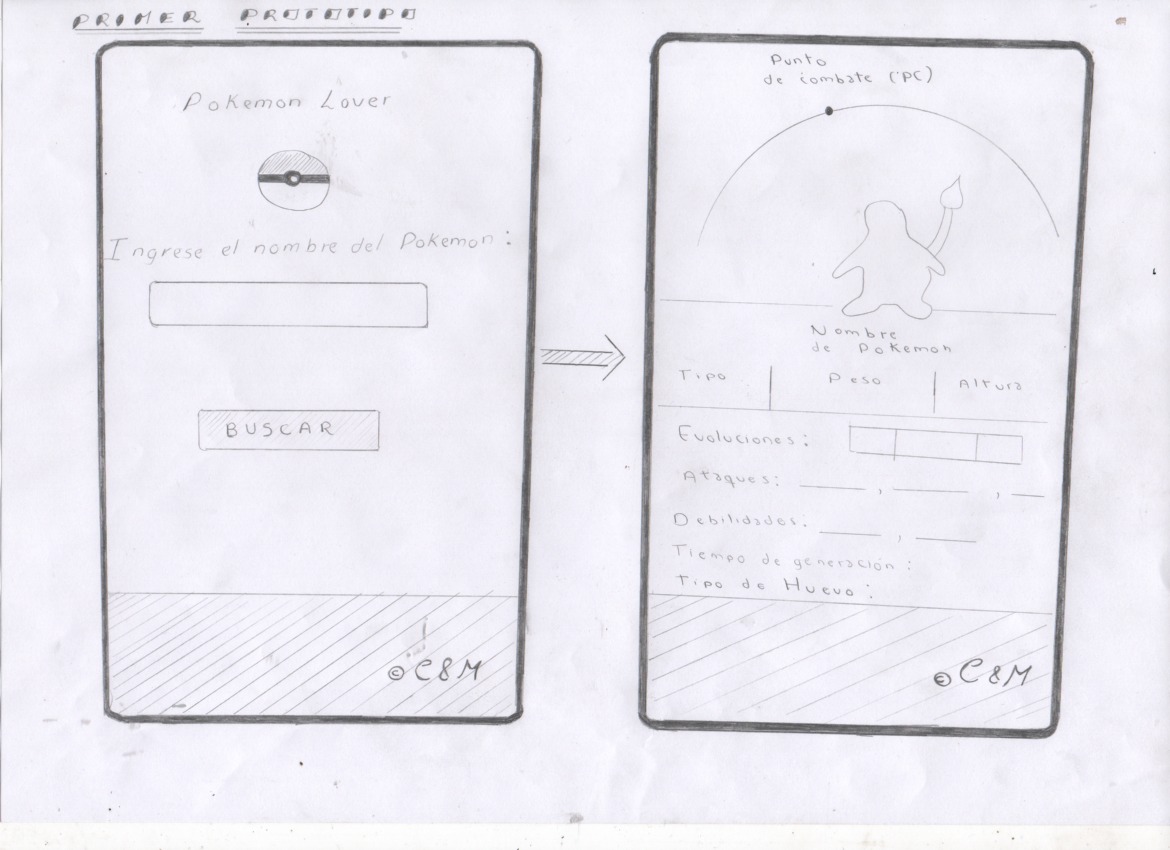 PRIMER PROTOTIPO
Pokemon Lover
Ingrese el nombre del Pokemon:
BUSCAR
© C&M
Punto
de combate (PC)
Nombre
de Pokemon
Tipo Peso Altura
Evoluciones:
Ataques: , ,
Debilidades: ,
Tiempo de generación:
Tipo de Huevo:
© C&M